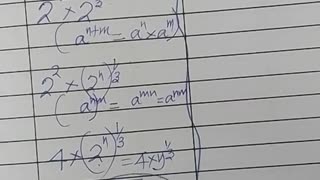 2² × 2^(n/3)
(a^(n+m) = a^n × a^m)
2² × (2^n)^(1/3)
(a^n)^m = a^(mn) = a^(nm)
4 × (2^n)^(1/3) = 4 × y^(1/3)